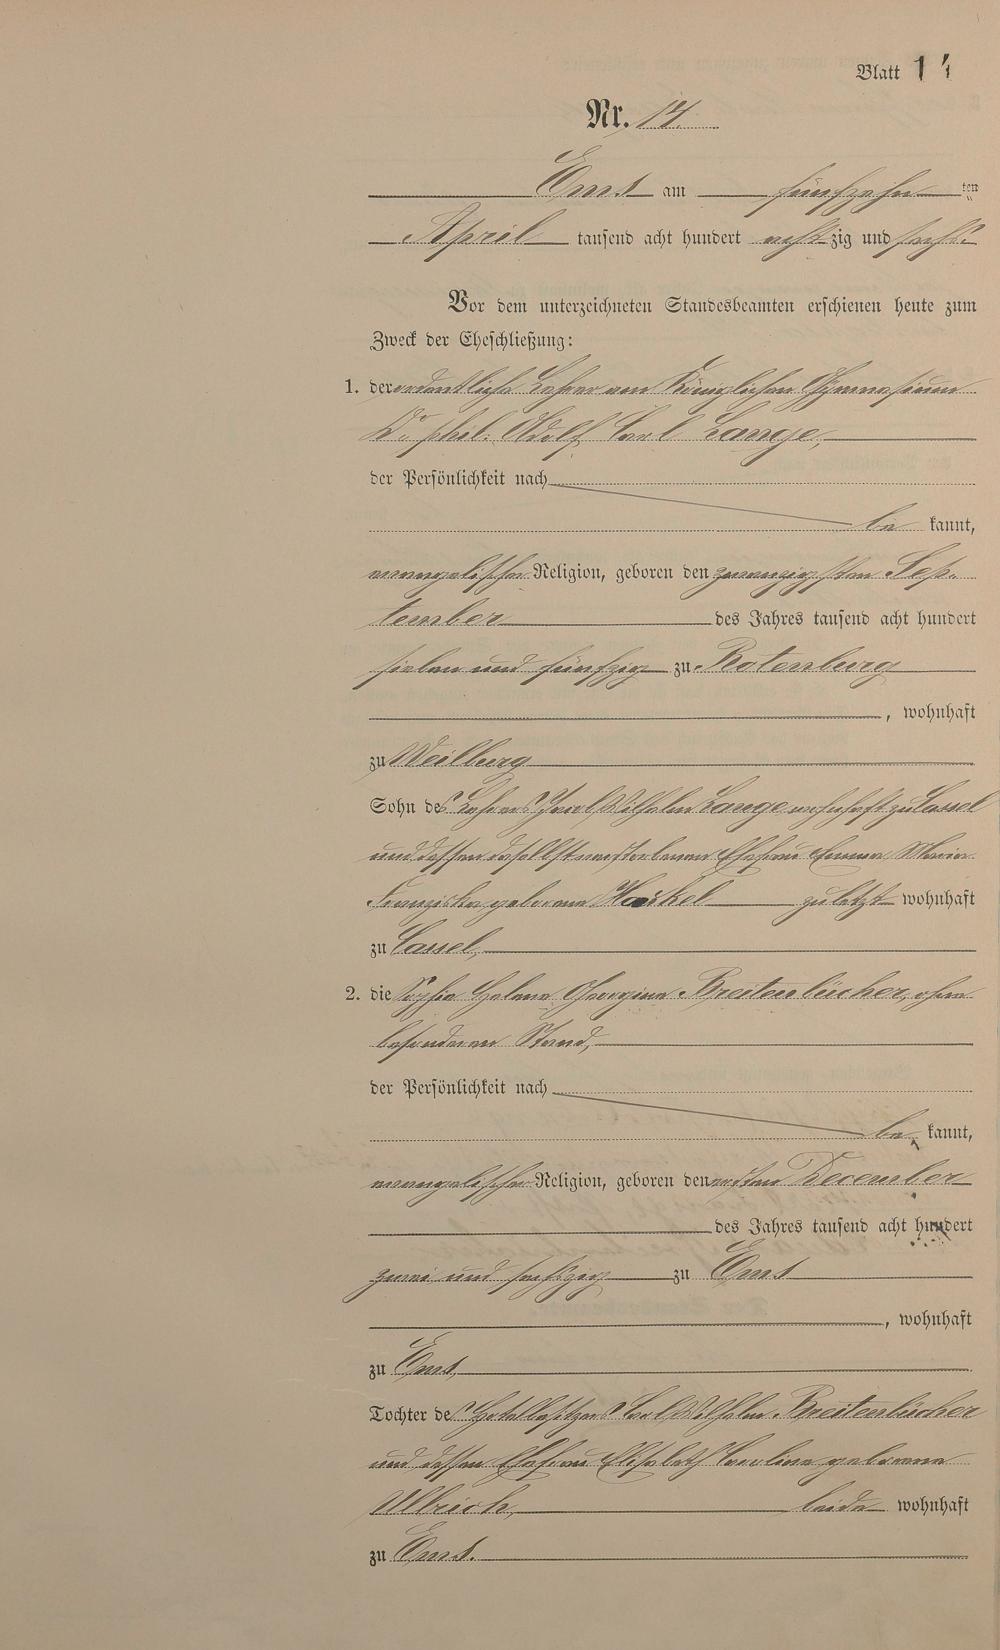 Blatt 14
Nr. 14.
Ems am fünfzehn ten
April tausend acht hundert achtzig und sechs.
Vor dem unterzeichneten Standesbeamten erschienen heute zum
Zweck der Eheschließung:
1. der ordentliche Lehrer am Königlichen Gymnasium
Dr. phil. Adolf Carl Lange,
der Persönlichkeit nach
be kannt,
evangelischer Religion, geboren den zwanzigsten Sep-
tember des Jahres tausend acht hundert
sieben und fünfzig zu Rotenburg
, wohnhaft
zu Weilburg
Sohn des Lehrers Carl Wilhelm Lange wohnhaft zu Cassel
und dessen daselbst verstorbenen Ehefrau Emma Maria
Franziska geborene zuletzt wohnhaft
zu Cassel,
2. die Sophie Helene Georgine Breitenbücher, ohne
besonderen Stand,
der Persönlichkeit nach
be kannt,
evangelischer Religion, geboren den ersten December
des Jahres tausend acht hundert
zwei und sechszig zu Ems
, wohnhaft
zu Ems,
Tochter des Hotelbesitzers Carl Wilhelm Breitenbücher
und dessen Ehefrau Elisabeth Caroline geborene
Ulrich, beide wohnhaft
zu Ems.